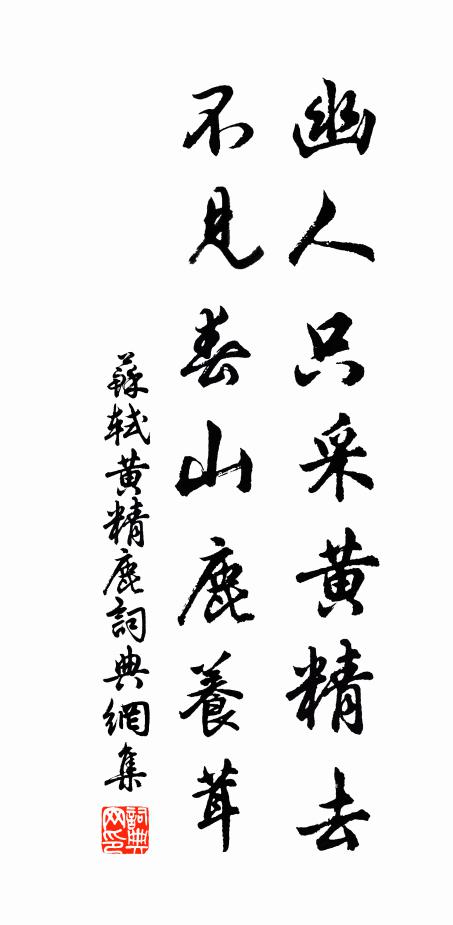 幽人只采黄精去
不見春山鹿養茸
蘇軾黄精鹿詞典網集
詞典
网印